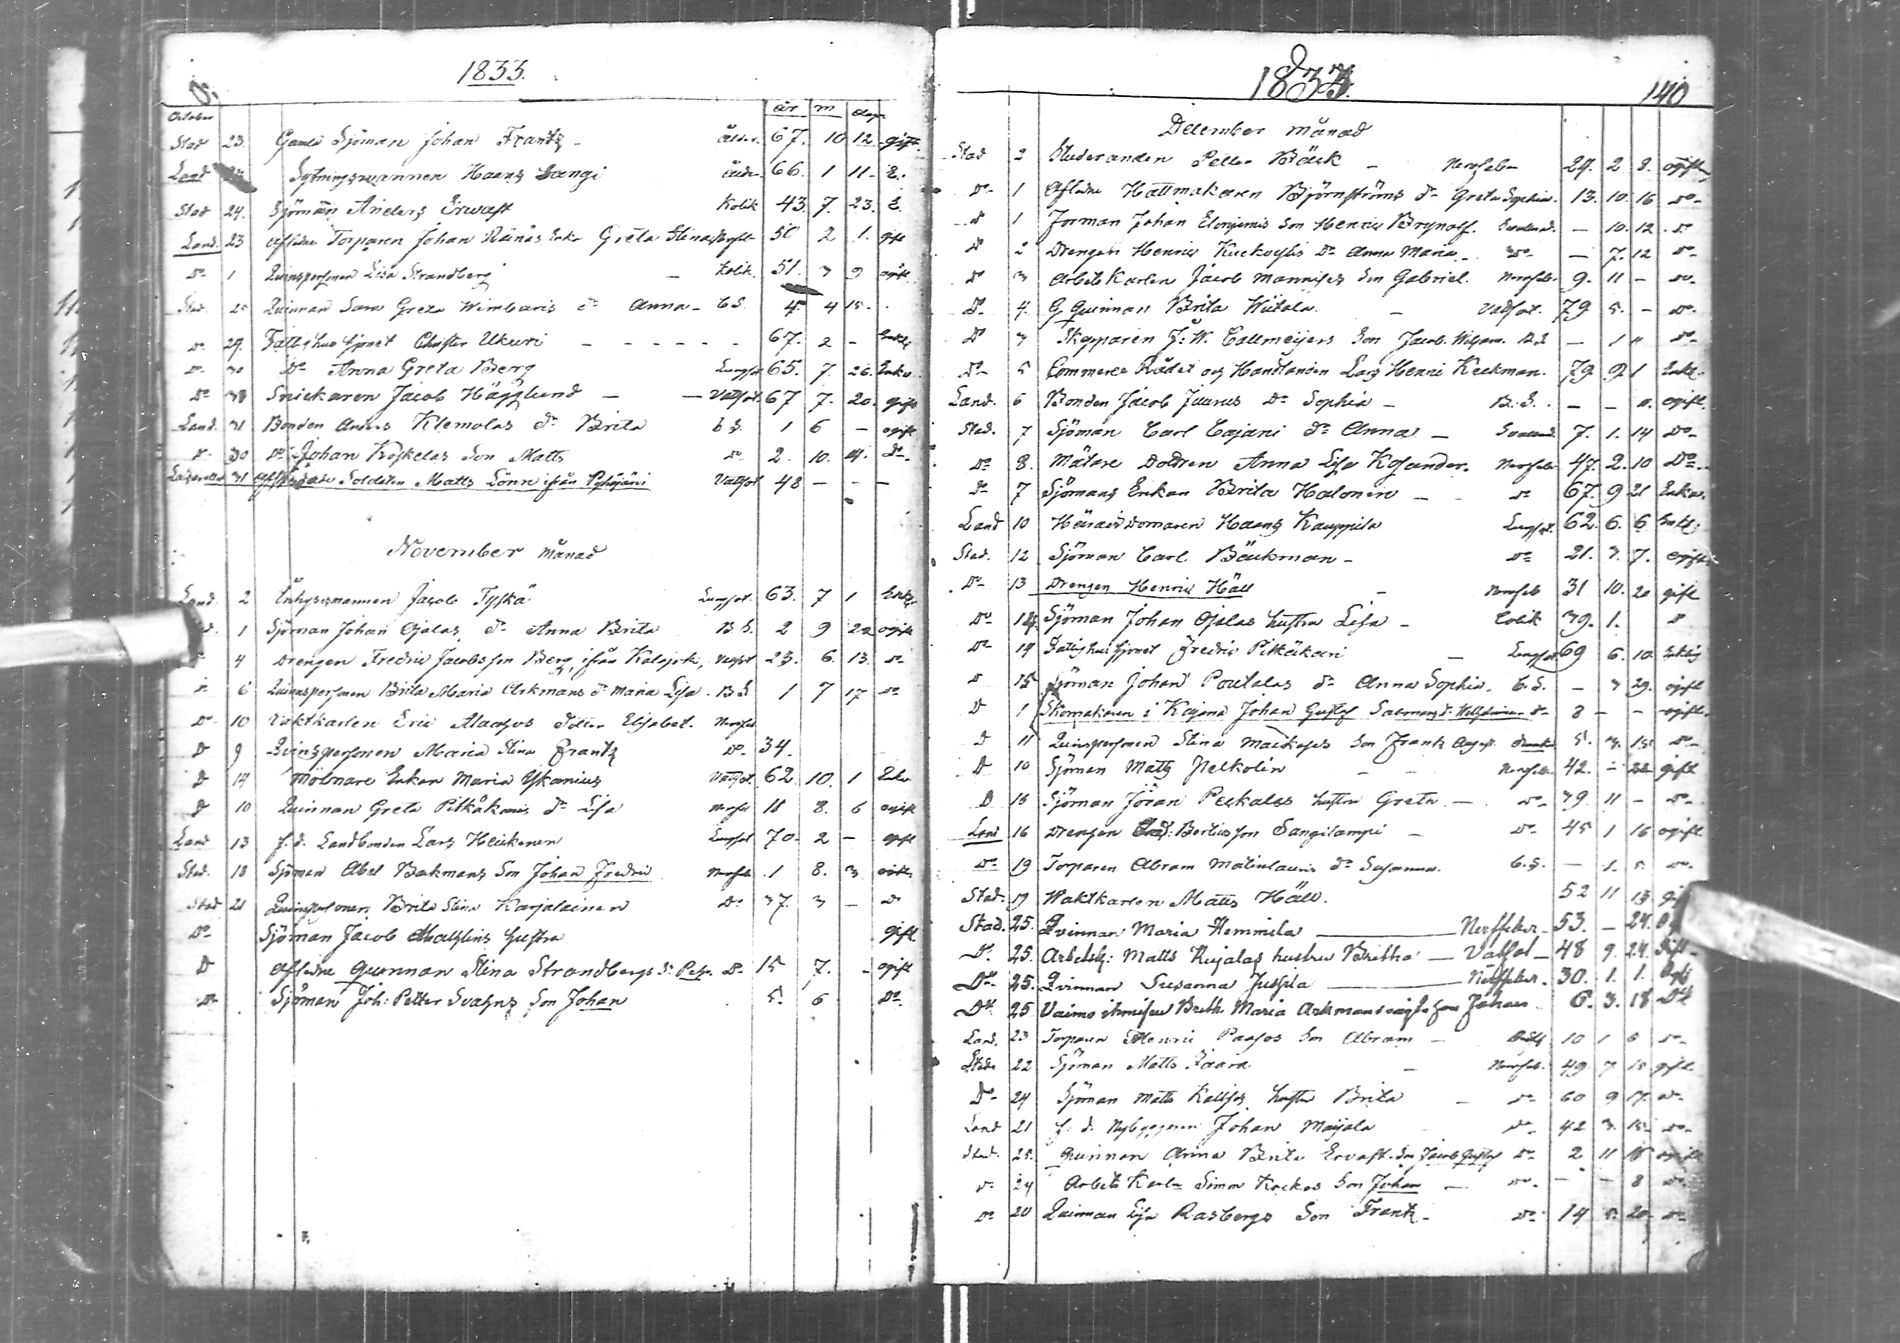 1833.
October år m dag
Stad 23. Gamla Sjöman Johan Frantz - Ålder. 67. 10 12 gift
Land Sytningsmannen Hans Sangi ålder. 66. 1 11 E.
Stad 24. Sjöman Anders Erwast Kolik 43. 7. 23. E.
Land. 23 Aflidne Torparen Johan Enka Greta Stina 50 2 1. gift
Do 1 Quinspersonen Lisa Strandberg - Kolik. 51. 3 9 ogift
Stad. 25 Quinnan Sara Greta Wimbaris dr Anna - b.S. 4. 4 15.
Do 29. Fattighus hjonet Christer Ukuri - - - - - 67. 2 - Enkl.
Do 30 Do Anna Greta Berg Lungsot 65. 7. 26. Enka
Do Snickaren Jacob Hägglund - - Vattsot 67 7. 20. gift
Land. 31 Bonden Anders Klemolas dr Brita b.S. 1 6 - ogift
Do 30 Do Johan Koskelas Son Matts Do 2. 10. Do
31 Soldaten Matts Lönn ifrån Pyhäjoki Vattsot 48 - - -
November månad
Land. 2 Inhysesmannen Jacob Tyskä Lungsot. 63. 7 1 Enkl.
1 Sjöman Johan Ojalas, dr Anna Brita B.S. 2 9 22 ogift
4 Drengen Fredric Jacobsson Berg, ifrån Kalajoki, Vattsot 23. 6. 13. Do
6 Quinspersonen Brita Maria Arkmans dr Maria Lisa. B.S. 1 7 17 Do
Do 10 Vaktkarlen Eric Alaasus dotter Elisabet. Nervfeb
D 9 Quinspersonen Maria Stina Frantz Do 34.
D 14 Mölnare Enkan Maria Yskanius Vattsot 62 10. 1 Enka
D 10 Quinnan Greta Pitkäkanis dr Lisa Nervfeb 18 8. 6 ogift
Land 13 f.d. Landbonden Lars Heikkinen Lungsot 70. 2 - gift
Stad. 18 Sjöman Abel Bakmans Son Johan Fredric Nervfeb. 1 8. 3
Stad 21 Quinspersonen Brita Stina Karjalainen Do 37. 3 - Do
Do Sjöman Jacob Mathlins hustru gift
D Aflidne Quinnan Stina Strandbergs S. Do 15 7. - ogift
Do Sjöman Joh: Petter Svahns Son Johan 5. 6 Do
1833. 140
December månad
Stad 2 Studeranden Petter Bäck - Nervfeber 24. 2 8. ogift
Do 1 Aflidne Hattmakaren Björnströms dr Greta Sophia. 13. 10. 16 Do
D 1 Forman Johan Son Henric Brynolf. - 10. 12. Do
D 2 Drengen Henric dr Anna Maria - Do - 7. 12 Do
D 3 Arbets Karlen Jacob Mannises Son Gabriel. Nervfeb. 9. 11 - Do
Do 4. G. Quinnan Brita Hietala. - Vattsot. 79 5. - Do
D 3 Skepparen J: W: Callmeijers Son Jacob B.S - 1 Do
Do 5 Commerce Rådet och Handlanden Lars Henric Keckman. 79 9 1 Enkl.
Land. 6 Bonden Jacob Juurus dr Sophia - B.S. - - ogift.
Stad. 7 Sjöman Carl Cajani dr Anna - 7. 1. 14 Do
Do 8. Mätare Dottren Anna Lisa Kosander. Nervfeb 47. 2. 10 Do
Do 7 Sjömans Enkan Brita Halonen - Do 67. 9 21 Enka.
Land 10 Häradsdomaren Hans Kauppila Lungsot. 62. 6. 6 Enkl.
Stad. 12 Sjöman Carl Bäckman - Do 21. 3. 7. ogift
Do 13 Drengen Henric Häll - Nervfeb 31 10. 20 gift
Do 14 Sjöman Johan Ojalas hustru Lisa - Colik 39. 1. D
Do 14 Fattighus hjonet Fredric Pitkäkari - Lungsot 69 6. 10. Enkl.
D 15 Sjöman Johan Poutalas dr Anna Sophia. b.S. - 3 29. ogift
D 1 Skomakaren i Kajana Johan Gustaf Do 8 - - ogift.
D 11 Quinspersonen Stina Maikoses Son Frantz August. 5. 3. 15 Do
D 10 Sjöman Matts Pelkolin - - Nervfeb. 42. - 22 gift
D 15 Sjöman Jöran Peckalas hustru Greta - Do 39. 11 - Do
Land 16 Drengen And: Bertilsson Sangilampi - Do 45 1 16 ogift
Do 19 Torparen Abram Matinlauris dr Susanna. b.S. - 1. 5. Do
Stad. 19 Waktkarlen Matts Häll. 52 11 13
Stad. 25. Qvinnan Maria Hemmila Nervfeber 53. - 24.
Do 25. Arbetsk: Matts Kujalas hustru Britha - Vatsot - 48 9. 24. Gift
Do 25. Qvinnan Susanna Juppila Nervfeber. 30. 1. 1.
Do 25 Britha Maria Arkmans Johan 6. 3. 18 Do
Land. 23 Torparen Henric Paasos Son Abram - 10 1 6 Do
Stad. 22 Sjöman Matts Paara - Nervfeb. 49 7 18 gift
Do 24 Sjöman Matts Kallios hustru Brita - Do 60 9 17. Do
Land 21 f.d. Nybyggaren Johan Maijala Do 42 3. 15. Do
Stad. 25. Quinnan Anna Brita Ervast. Son Jacob Gustaf Do 2 11 18 ogift
Do 24 Arbets Karln Simon Kockos Son Johan - Do - - 8 Do
Do 20 Quinnan Lisa Rasbergs Son Frantz. Do 14 5. 20. Do